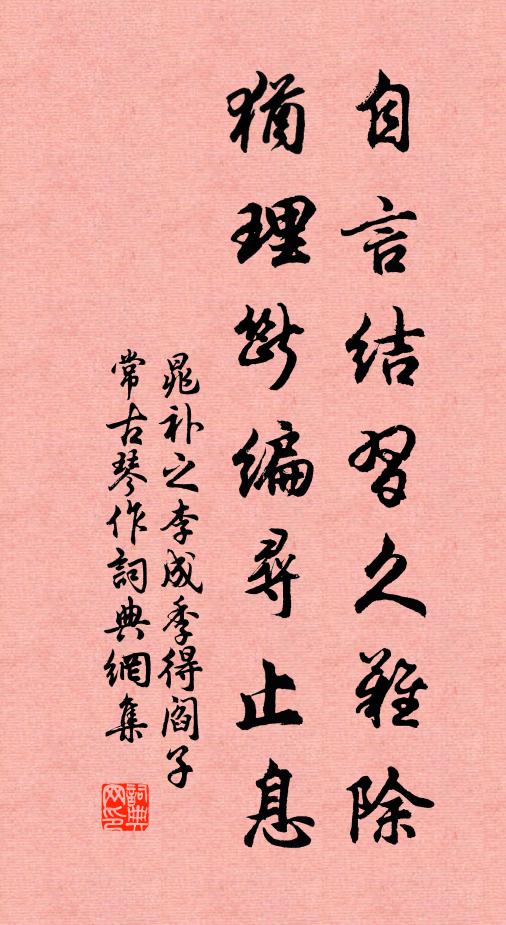 自言结習久難除
猶理断编尋止息
晁补之李成季得阎子
常古琴作詞典網集
詞典網印